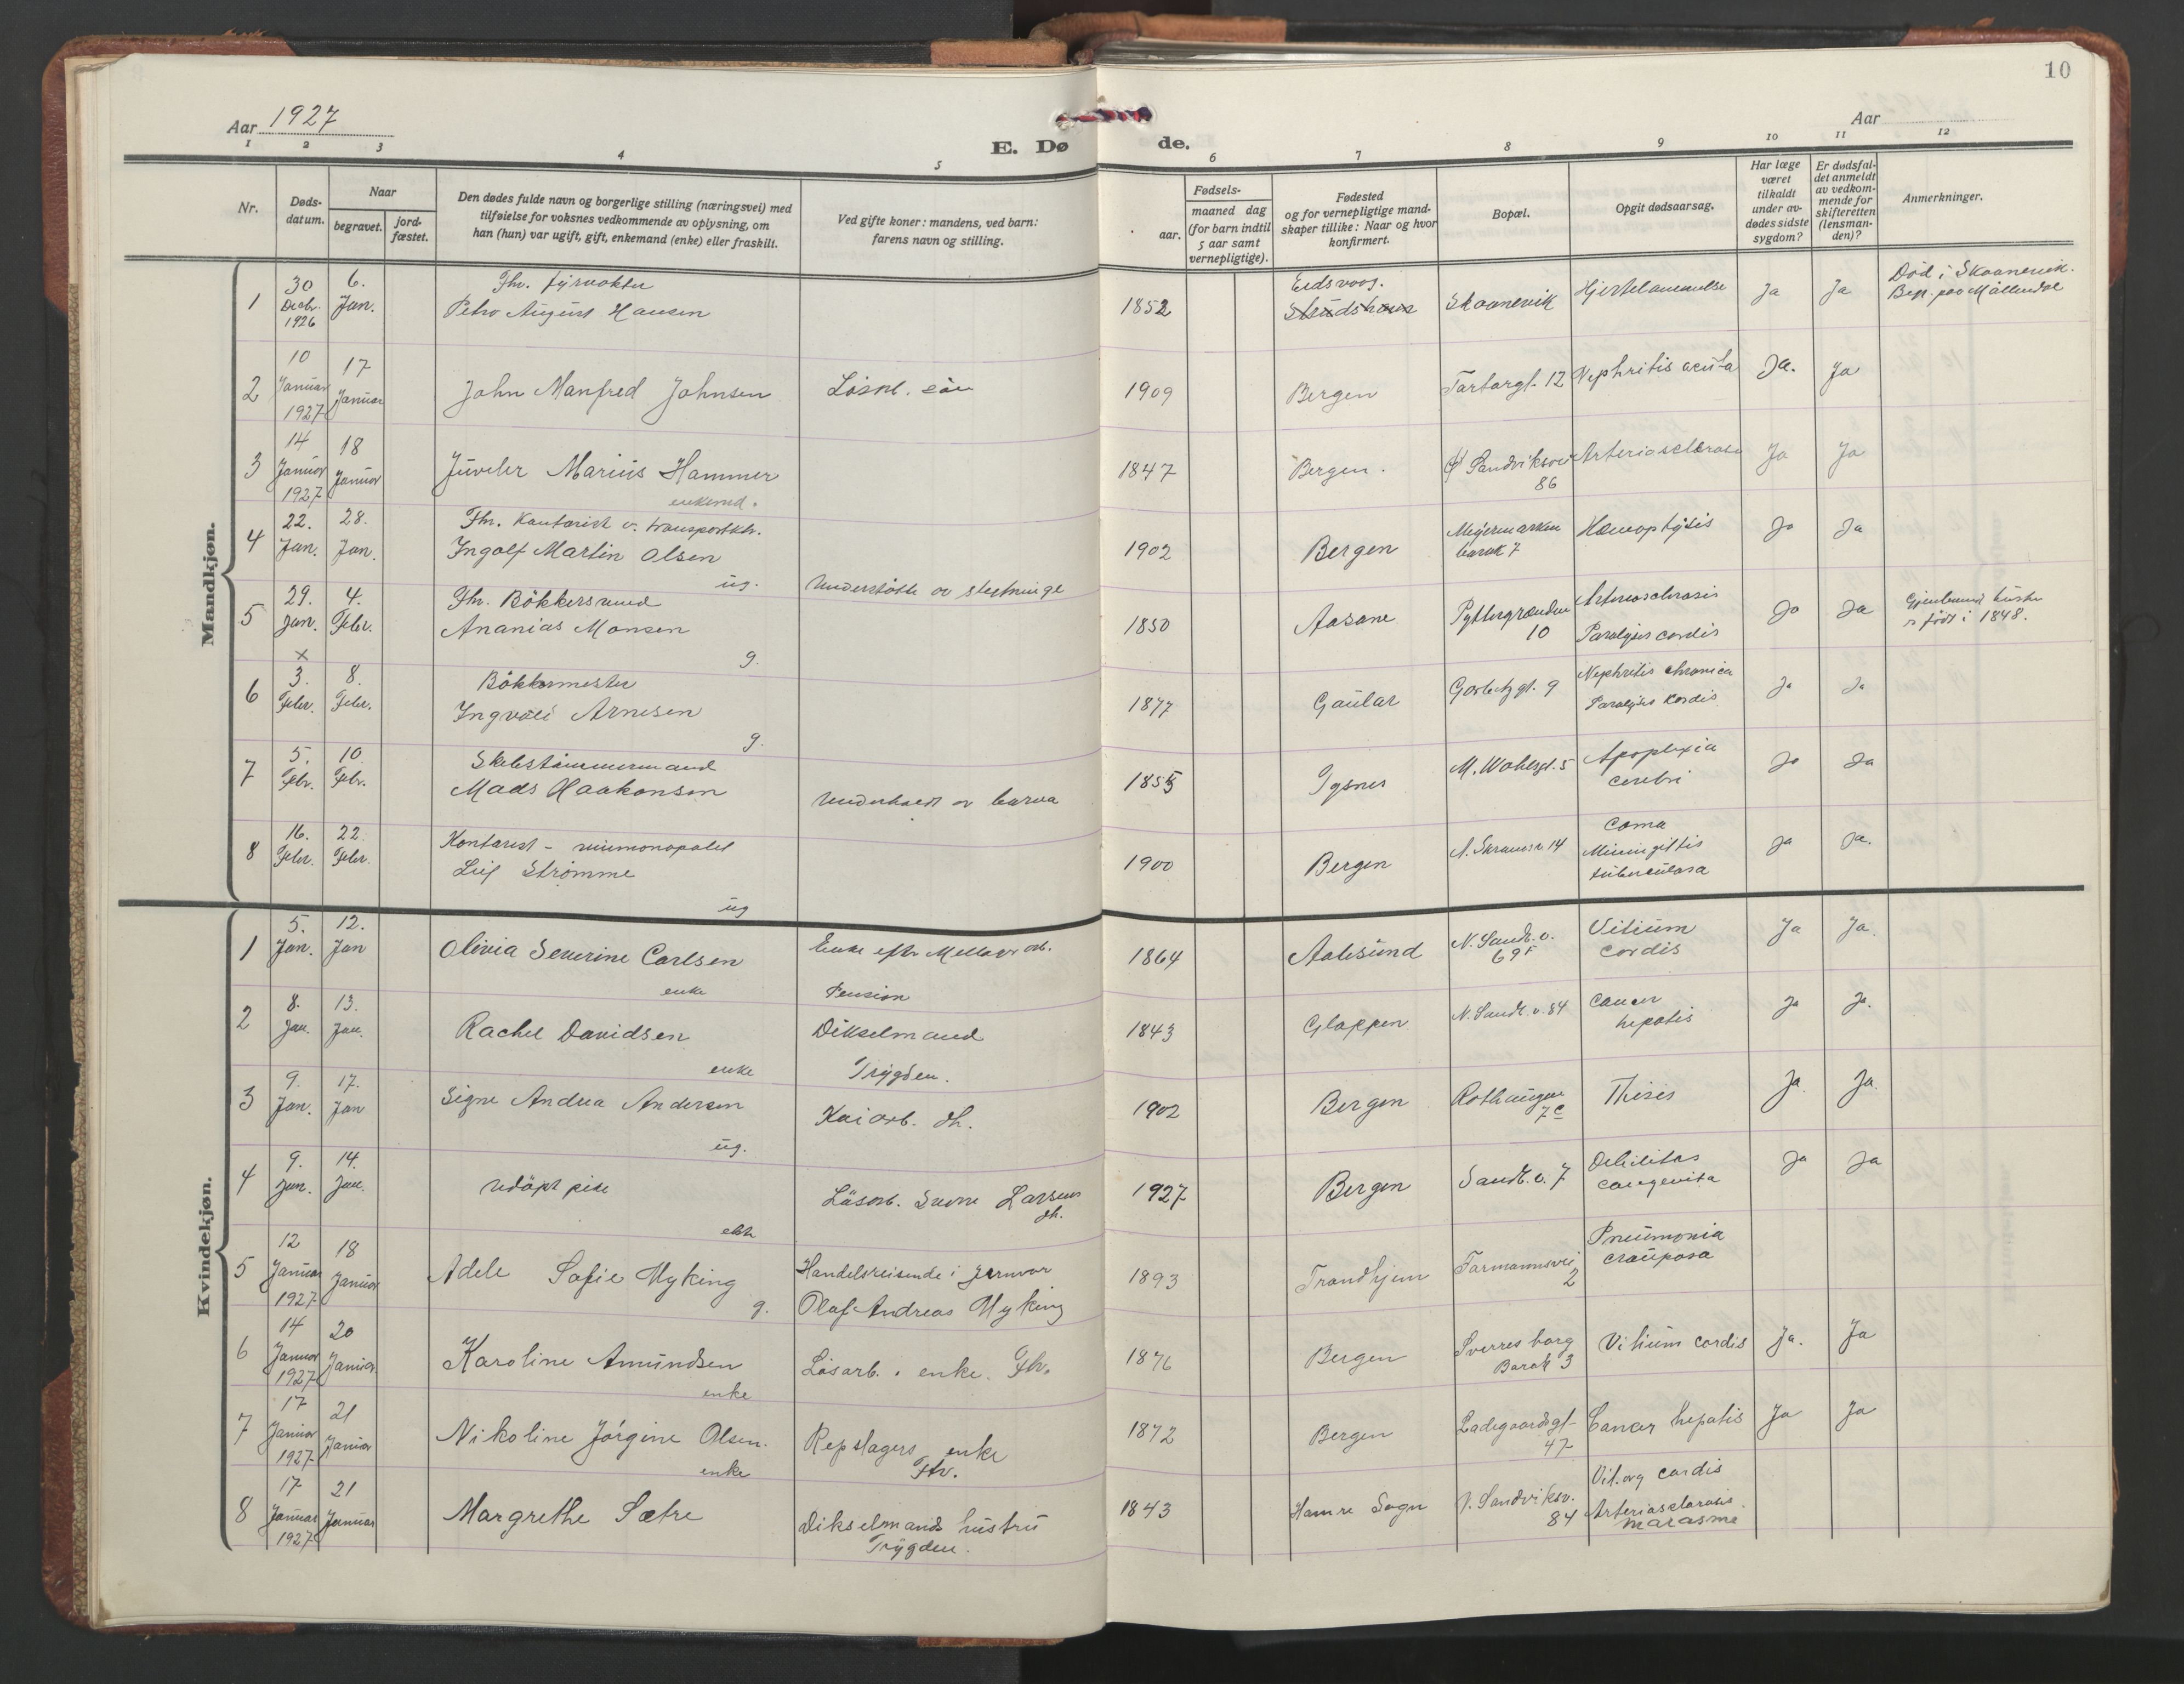 10
Aar 1927
Aar
E. Dø
de.
1 2 3 4 5 6 7 8 9 10 11 12
Nr.
Døds-
datum.
Naar
begravet.
jord-
fæstet.
Den dødes fulde navn og borgerlige stilling (næringsvei) med
tilføielse for voksnes vedkommende av oplysning, om
han (hun) var ugift, gift, enkemand (enke) eller fraskilt.
Ved gifte koner: mandens, ved barn:
farens navn og stilling.
Fødsels-
aar.
maaned dag
(for barn indtil
5 aar samt
vernepligtige).
Fødested
og for vernepligtige mand-
skaper tillike: Naar og hvor
konfirmert.
Bopæl.
Opgit dødsaarsag.
Har læge
været
tilkaldt
under av-
dødes sidste
sygdom?
Er dødsfal-
det anmeldt
av vedkom-
mende for
skifteretten
(lensman-
den)?
Anmerkninger.
Mandkjøn.
1
30 Decbr. 1926
6. Jan.
Fhv. fyrvokter
Petro August Hansen
1852
Eidsvoog.
Skaanevik
Hjertelammelse
Ja
Ja
Død i Skaanevik.
Begr. paa Møllendal
2
10 Januar 1927
17 Januar
John Manfred Johnsen
Løsarb. søn
1909
Bergen
Tartargt. 12
Nephritis acuta
Ja.
Ja
3
14 Januar 1927
18 Januar
Juveler Marius Hammer
enkemd.
1847
Bergen.
Sandviksvei
86
Arteriosclerose
Ja
Ja
4
22. Jan.
28. Jan.
Fhv. Kontorist v. transportktr.
Ingolf Martin Olsen
ug.
1902
Bergen
Meyermarken
barak 7
Hæmoptysis
Ja
Ja
5
29. Jan.
4. Febr.
Fhv. Bökkersvend
Ananias Monsen
g.
Understøtte av slegtninge
1850
Aasane
Pyttergrænden
10
Arteriosclerosis
Paralysis cordis
Ja
Ja
Gjenlevend hustru
er født i 1848.
6
x
3. Febr.
8. Febr.
Bökkermester
Ingvald Arnesen
g.
1877
Gaular
Garbetzgt. 9
Nephritis chronica
Paralysis Kordis
Ja
Ja
7
5. Febr.
10. Febr.
Skibstømmermand
Mads Haakonsen
Underholdt av barna
1855
Tysnes
M. Wolesgt. 5
Apoplexia
cerebri
Ja
Ja
8
16. Febr.
22. Febr.
Kontorist - vinmonopolet
Leif Strömme
ug
1900
Bergen
A. Skramsv. 14
Coma
Miningittis
tuberculosa
Ja
Ja.
Kvindekjøn.
1
5. Jan.
12. Jan
Olivia Severine Carlsen
enke
Enke efter Møllearb.
Pension
1864
Aalesund
N. Sandv. v.
69F
Vitium
cordis
Ja
Ja.
2
8. Jan.
13. Jan.
Rachel Davidsen
enke
Dikselmand
Trygden.
1843
Gloppen
N. Sandv. v. 84
Cancer
hepatis
Ja
Ja.
3
9. Jan.
17. Jan
Signe Andrea Andersen
ug.
Kaiarb. dt.
1902
Bergen
Rothaugen
7c
Thisis
Ja.
Ja.
4
9. Jan.
14. Jan.
Udöpt pike
ekte
Løsarb. Sverre Larsens
dt.
1927
Bergen
Sandv. v. 7
Debilitas
congenita
Ja
Ja
5
12 Januar 1927
18 Januar
Adele Sofie Myking
g.
Handelsreisende i jernvar
Olaf Andreas Myking
1893
Trondhjem
Formannsvei
2
Pneumonia
crouposa
6
14 Januar 1927
20 Januar
Karoline Amundsen
enke
Løsarb. enke. Fhv.
1876
Bergen
Sverresborg
Barak 3
Vitium cordis
Ja.
Ja
7
17 Januar 1927
21 Januar
Nikoline Jörgine Olsen.
enke
Repslagers enke
Fhv.
1872
Bergen
Ladegaardsgt-
47
Cancer hepatis
Ja
Ja
8
17 Januar 1927
21 Januar
Margrethe Sætre
Dikselmands hustru
Trygden.
1843
Hamre Sogn
N. Sandviksv.
84
Vit. org cordis
Arteriosclerosis.
marasme